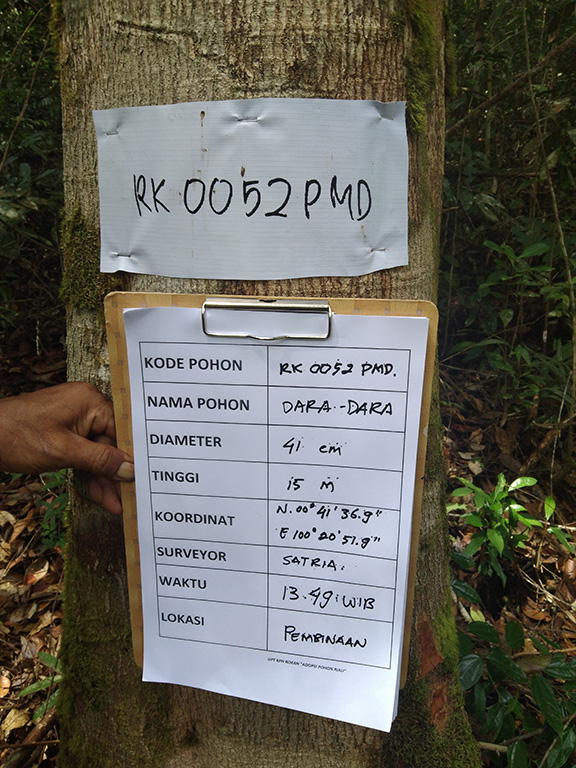 RK 0052 PMD
KODE POHON RK 0052 PMD.
NAMA POHON DARA-DARA
DIAMETER 41 cm
TINGGI 15 M
KOORDINAT N. 00° 41' 36.9"
E 100° 20' 51.9"
SURVEYOR SATRIA.
WAKTU 13.49 WIB
LOKASI PEMBINAAN
UPT KPH ROKAN "ADOPSI POHON RIAU"